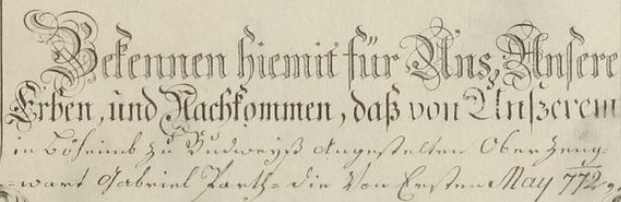 Bekennen hiemit für Uns, Unsere
Erben, und Nachkommen, daß von Unßerem
in Böheimb zu Budweyß Angestelten Ober Zeug-
=wart Gabriel Parth= die Von Ersten May 772